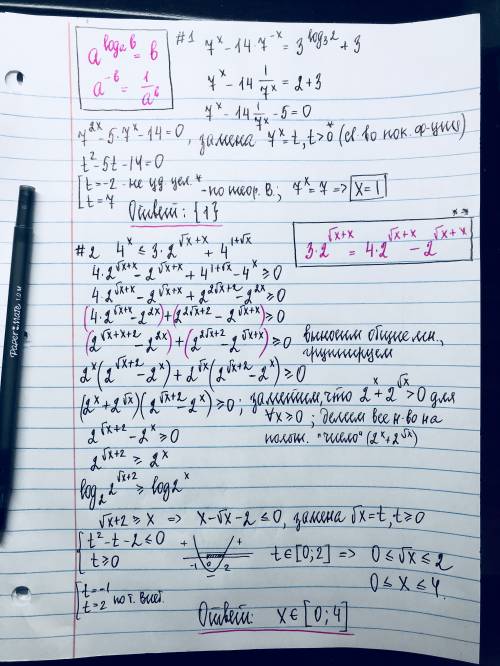 a^{log_a b} = b
a^{-b} = 1/a^b
#1 7^x - 14·7^{-x} = 3^{log_3 2} + 3
7^x - 14 1/7^x = 2+3
7^x - 14 1/7^x - 5 = 0
7^{2x} - 5·7^x - 14 = 0, замена 7^x = t, t>0* (св.во пок. ф-ции)
t^2 - 5t - 14 = 0
[t = -2 - не уд. усл.* - по теор. В.; 7^x = 7 => X = 1
t = 7
Ответ: {1}
* -*
3·2^{√x+x} = 4·2^{√x+x} - 2^{√x+x}
#2 4^x ≤ 3·2^{√x+x} + 4^{1+√x}
4·2^{√x+x} - 2^{√x+x} + 4^{1+√x} - 4^x ≥ 0
4·2^{√x+x} - 2^{√x+x} + 2^{2√x+2} - 2^{2x} ≥ 0
(4·2^{√x+x} - 2^{2x}) + (2^{2√x+2} - 2^{√x+x}) ≥ 0
(2^{√x+x+2} - 2^{2x}) + (2^{2√x+2} - 2^{√x+x}) ≥ 0 выносим общие мн.,
группируем
2^x (2^{√x+2} - 2^x) + 2^{√x} (2^{√x+2} - 2^x) ≥ 0
(2^x + 2^{√x}) (2^{√x+2} - 2^x) ≥ 0; заметим, что 2^x + 2^{√x} > 0 для
∀x ≥ 0; делим все н-во на
полож. "число" (2^x + 2^{√x})
2^{√x+2} - 2^x ≥ 0
2^{√x+2} ≥ 2^x
log_2 2^{√x+2} ≥ log 2^x
√x+2 ≥ x => x - √x - 2 ≤ 0, замена √x = t, t ≥ 0
{t^2 - t - 2 ≤ 0
t ≥ 0
+ - + -1 0 2
t ∈ [0; 2] => 0 ≤ √x ≤ 2
0 ≤ x ≤ 4
[t = -1
t = 2 по т. Виет.
Ответ: x ∈ [0; 4]
PAPER MATE 1.0 M